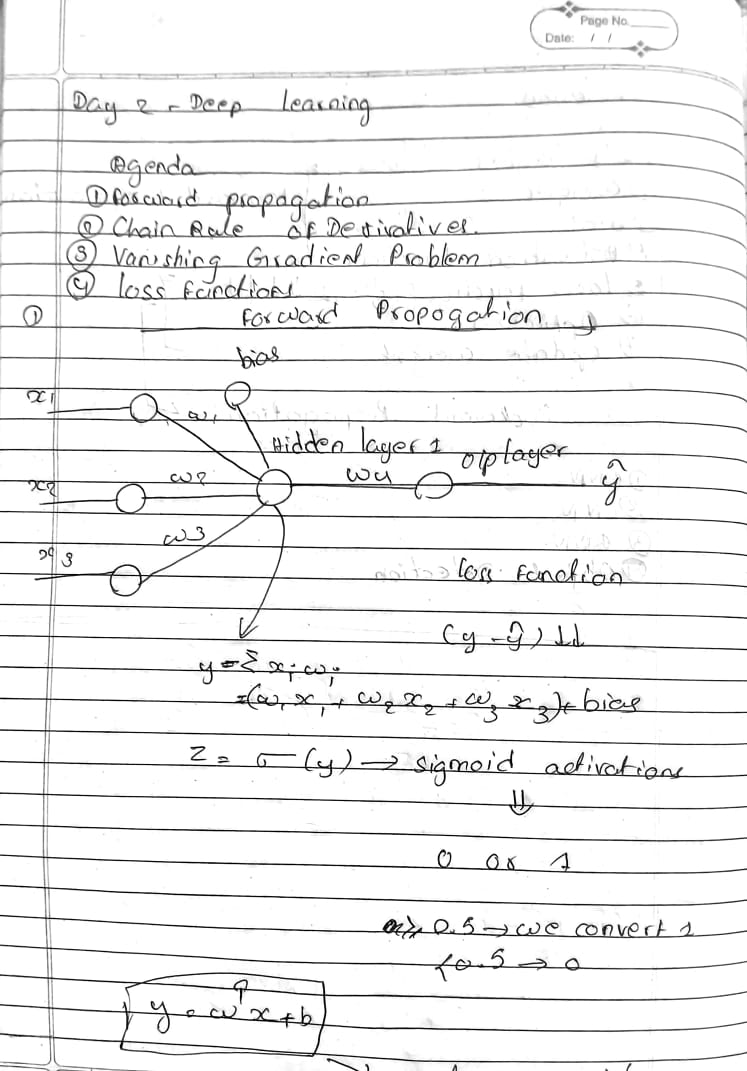 Page No.
Date: / /
Day 2 - Deep Learning
Agenda
① forward propagation
② Chain Rule of Derivatives.
③ Vanishing Gradient Problem
④ loss functions
① Forward Propogation
bias
x1
w1
Hidden layer 1
o/p layer
x2
w2
w4
ŷ
w3
x3
loss function
(y - ŷ) ↓↓
y = Σ xi wi
= (w1 x1 + w2 x2 + w3 x3) + bias
z = σ (y) → sigmoid activations
⇓
0 or 1
≥ 0.5 → we convert 1
< 0.5 → 0
y = wᵀx + b